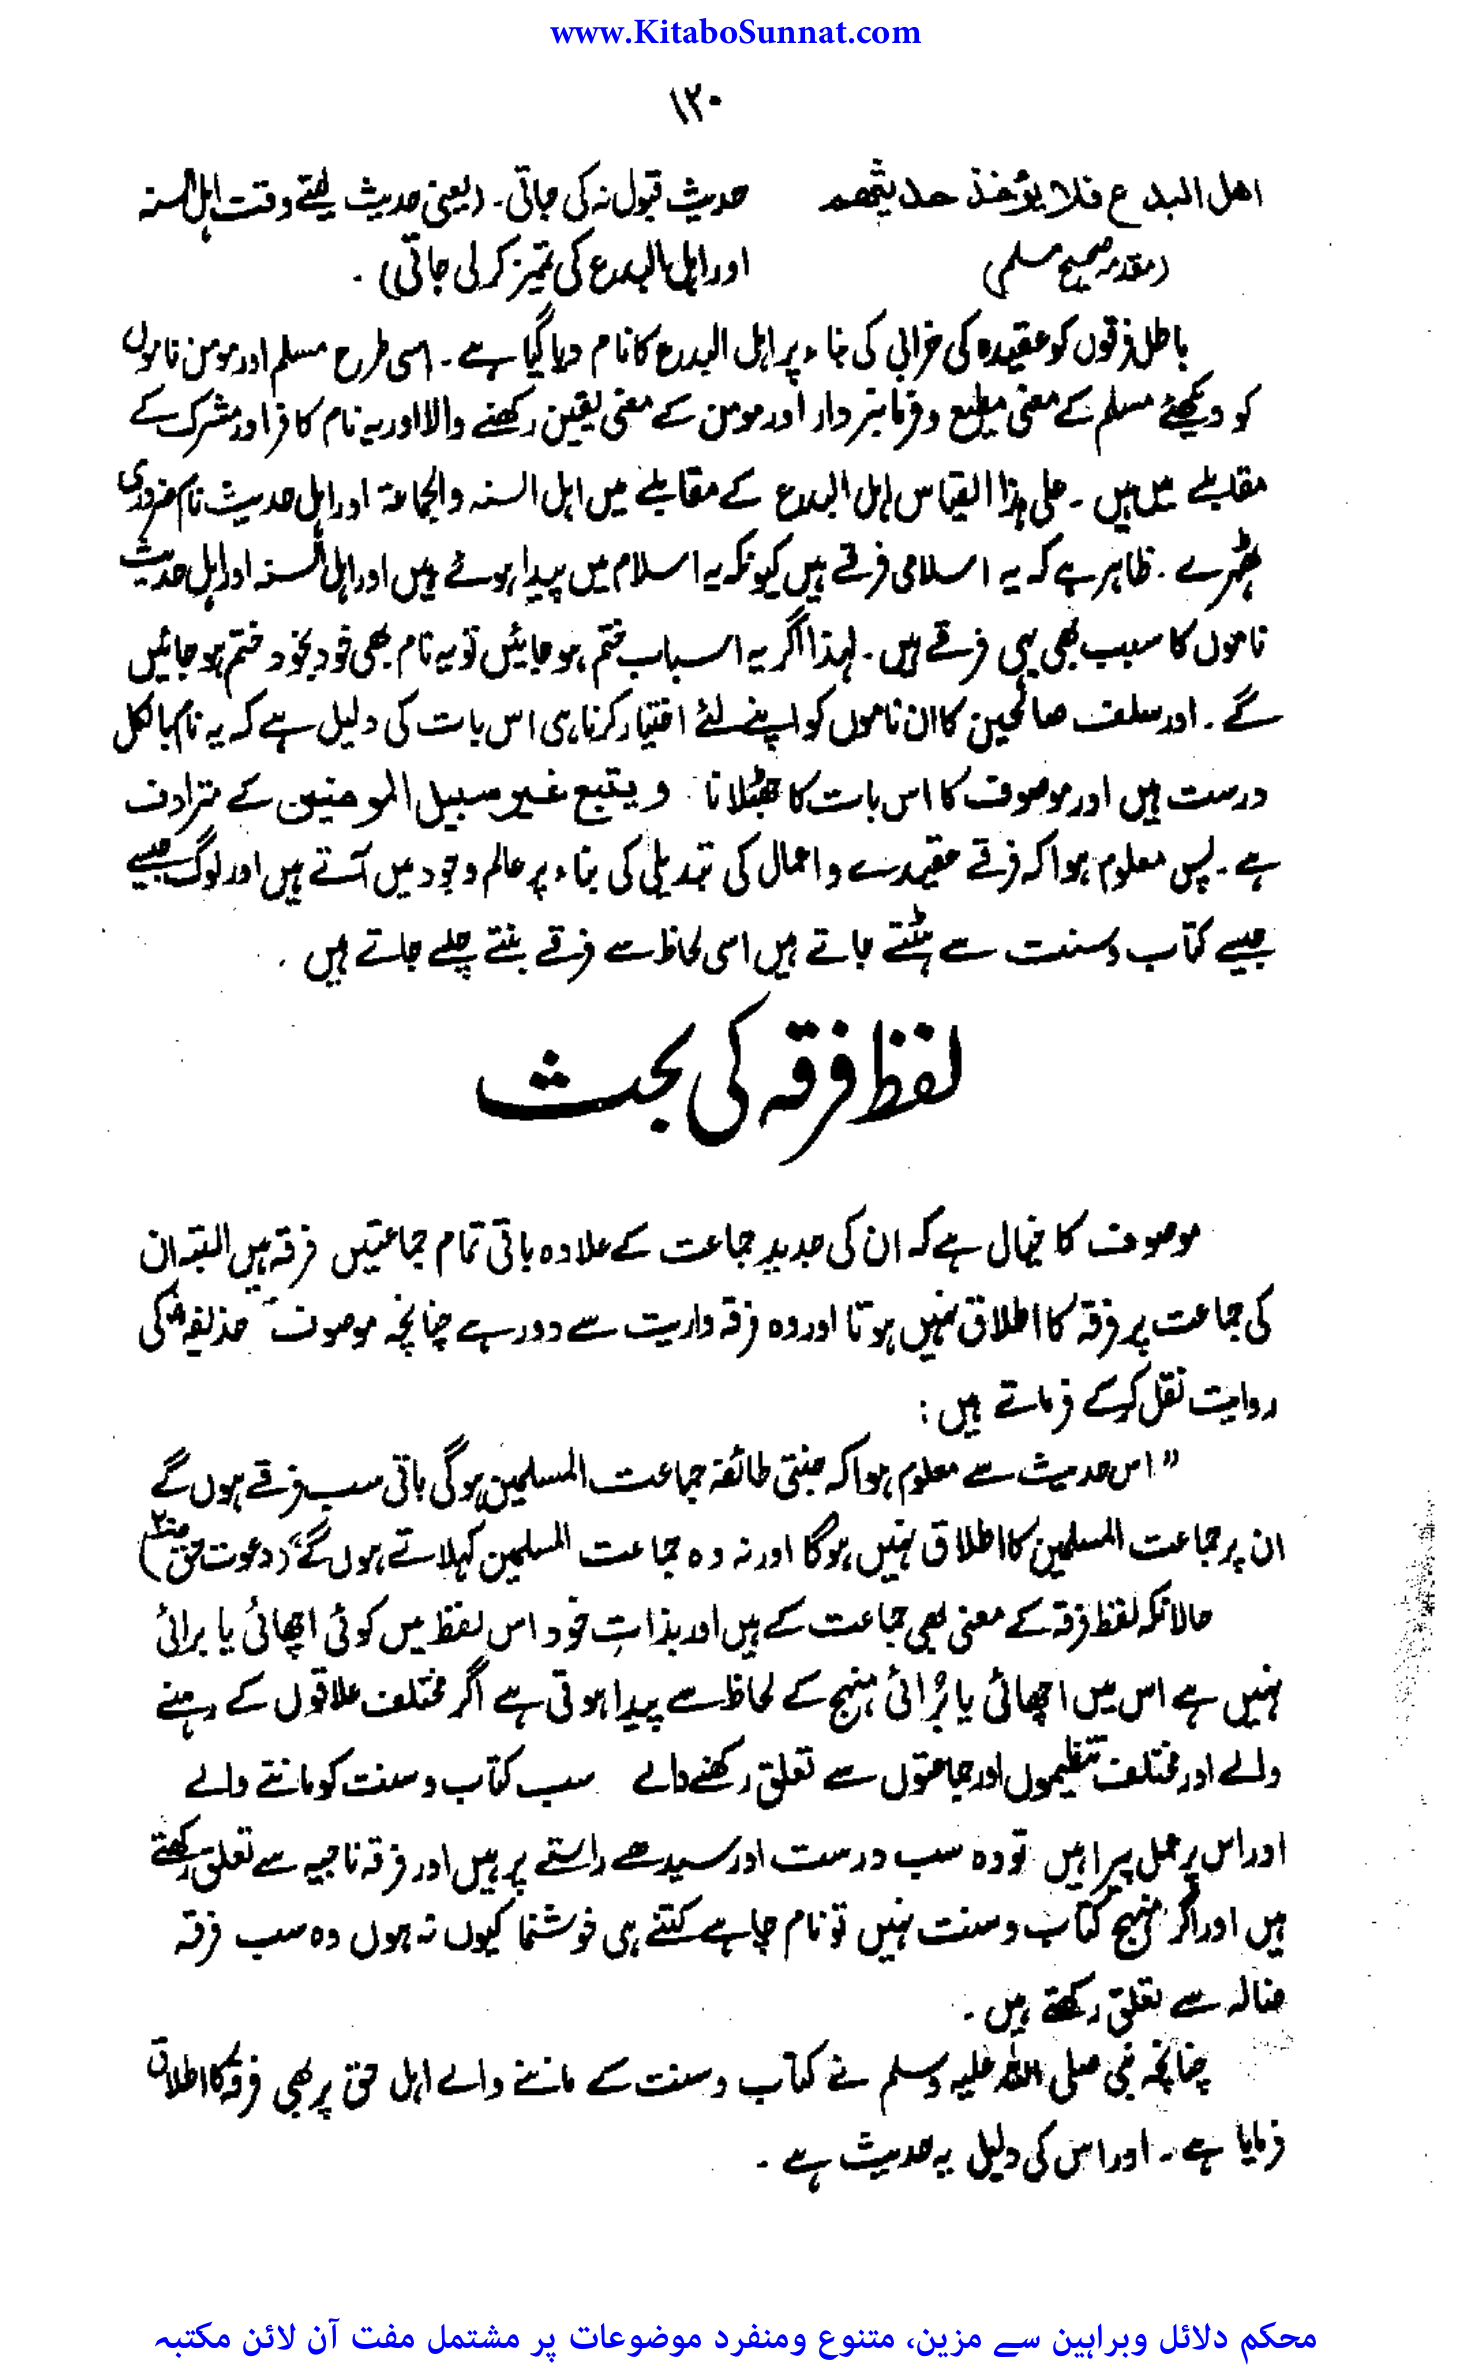 www.KitaboSunnat.com
۱۲۰
اهل البدع فلا يؤخذ حديثهم
(مقدمہ صحیح مسلم)
حدیث قبول نہ کی جاتی۔ (یعنی حدیث لیتے وقت اہل السنہ
اور اہل البدع کی تمیز کر لی جاتی)۔
باطل فرقوں کو عقیدہ کی خرابی کی بناء پر اہل البدع کا نام دیا گیا ہے۔ اسی طرح مسلم اور مومن ناموں
کو دیکھئے مسلم کے معنی مطیع و فرمانبردار اور مومن کے معنی یقین رکھنے والا اور یہ نام کافر اور مشرک کے
مقابلے میں ہیں۔ علی ہذا القیاس اہل البدع کے مقابلے میں اہل السنہ والجماعۃ اور اہل حدیث نام ضروری
ٹھہرے۔ ظاہر ہے کہ یہ اسلامی فرقے ہیں کیونکہ یہ اسلام میں پیدا ہوئے ہیں اور اہل السنہ اور اہل حدیث
ناموں کا سبب بھی یہی فرقے ہیں۔ لہذا اگر یہ اسباب ختم ہو جائیں تو یہ نام بھی خود بخود ختم ہو جائیں
گے۔ اور سلف صالحین کا ان ناموں کو اپنے لئے اختیار کرنا ہی اس بات کی دلیل ہے کہ یہ نام بالکل
درست ہیں اور موصوف کا اس بات کا جھٹلانا و یتبع غیر سبیل المومنین کے مترادف
ہے۔ پس معلوم ہوا کہ فرقے عقیدے و اعمال کی تبدیلی کی بناء پر عالم وجود میں آتے ہیں اور لوگ جیسے
جیسے کتاب و سنت سے ہٹتے جاتے ہیں اسی لحاظ سے فرقے بنتے چلے جاتے ہیں۔
لفظ فرقہ کی بحث
موصوف کا خیال ہے کہ ان کی جدید جماعت کے علاوہ باقی تمام جماعتیں فرقہ ہیں البتہ ان
کی جماعت پر فرقہ کا اطلاق نہیں ہوتا اور وہ فرقہ واریت سے دور ہے چنانچہ موصوف حذیفہؓ کی
روایت نقل کرکے فرماتے ہیں:
"اس حدیث سے معلوم ہوا کہ جنتی طائفۃ جماعت المسلمین ہوگی باقی سب فرقے ہوں گے
ان پر جماعت المسلمین کا اطلاق نہیں ہوگا اور نہ وہ جماعت المسلمین کہلاتے ہوں گے" (دعوت حق
حالانکہ لفظ فرقہ کے معنی بھی جماعت کے ہیں اور بذاتِ خود اس لفظ میں کوئی اچھائی یا برائی
نہیں ہے اس میں اچھائی یا بُرائی منہج کے لحاظ سے پیدا ہوتی ہے اگر مختلف علاقوں کے رہنے
والے اور مختلف تنظیموں اور جماعتوں سے تعلق رکھنے والے سب کتاب و سنت کو ماننے والے
اور اس پر عمل پیرا ہیں تو وہ سب درست اور سیدھے راستے پر ہیں اور فرقہ ناجیہ سے تعلق رکھتے
ہیں اور اگر منہج کتاب و سنت نہیں تو نام چاہے کتنے ہی خوشنما کیوں نہ ہوں وہ سب فرقہ
ضالہ سے تعلق رکھتے ہیں۔
چنانچہ نبی صلی اللہ علیہ وسلم نے کتاب و سنت کے ماننے والے اہل حق پر بھی فرقہ کا اطلاق
فرمایا ہے۔ اور اس کی دلیل یہ حدیث ہے۔
محکم دلائل وبراہین سے مزین، متنوع ومنفرد موضوعات پر مشتمل مفت آن لائن مکتبہ